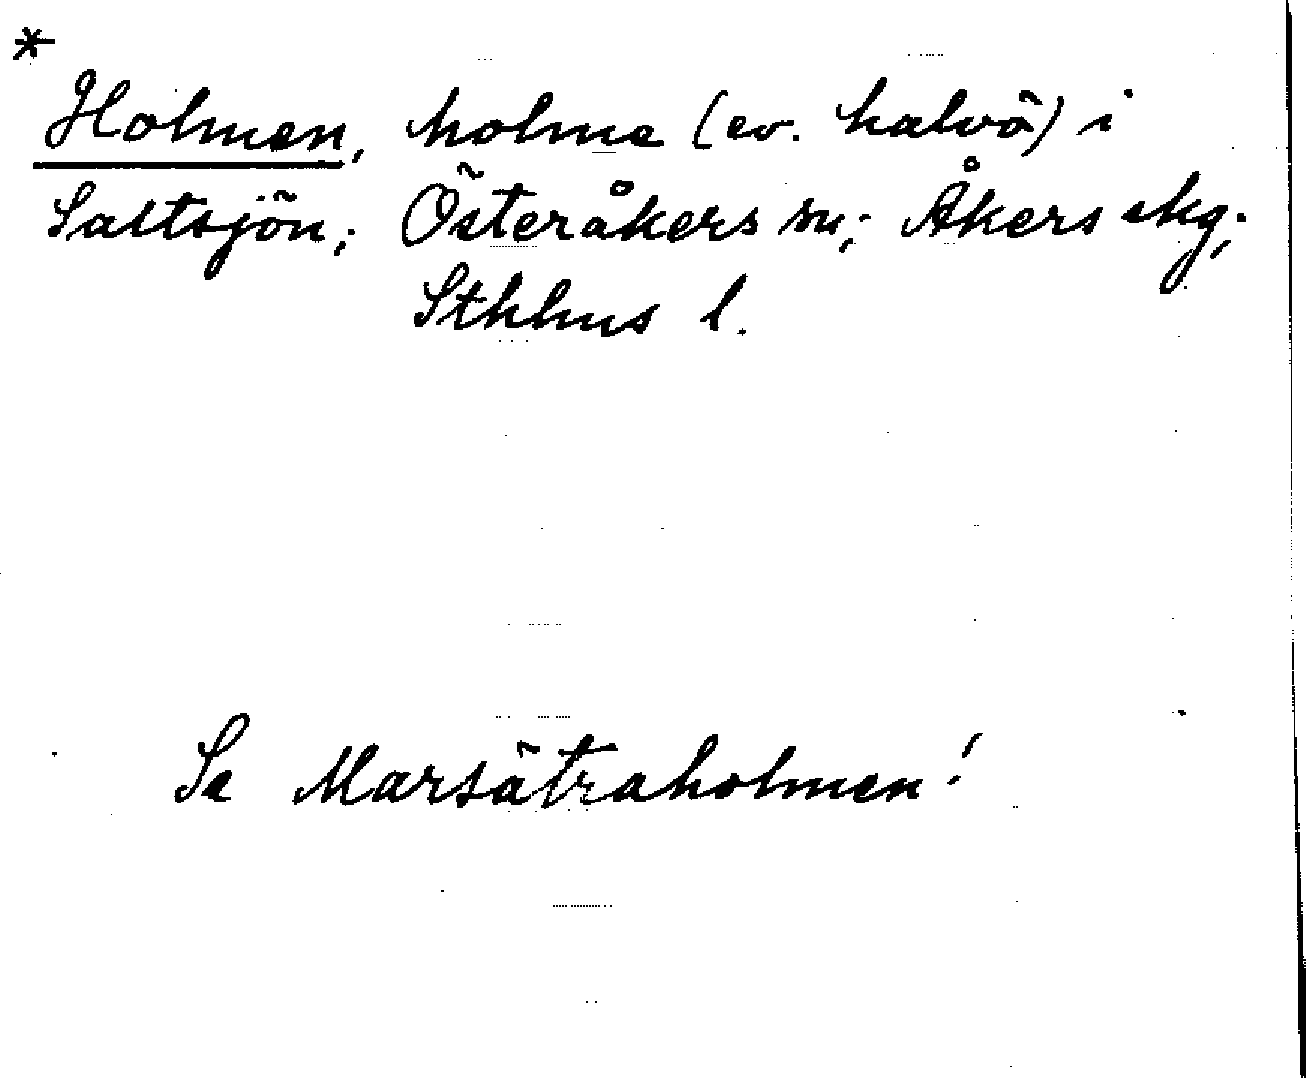 *
Holmen, holme (ev. halvö) i
Saltsjön; Österåkers sn; Åkers skg;
Sthlms l.
Se Marsätraholmen!